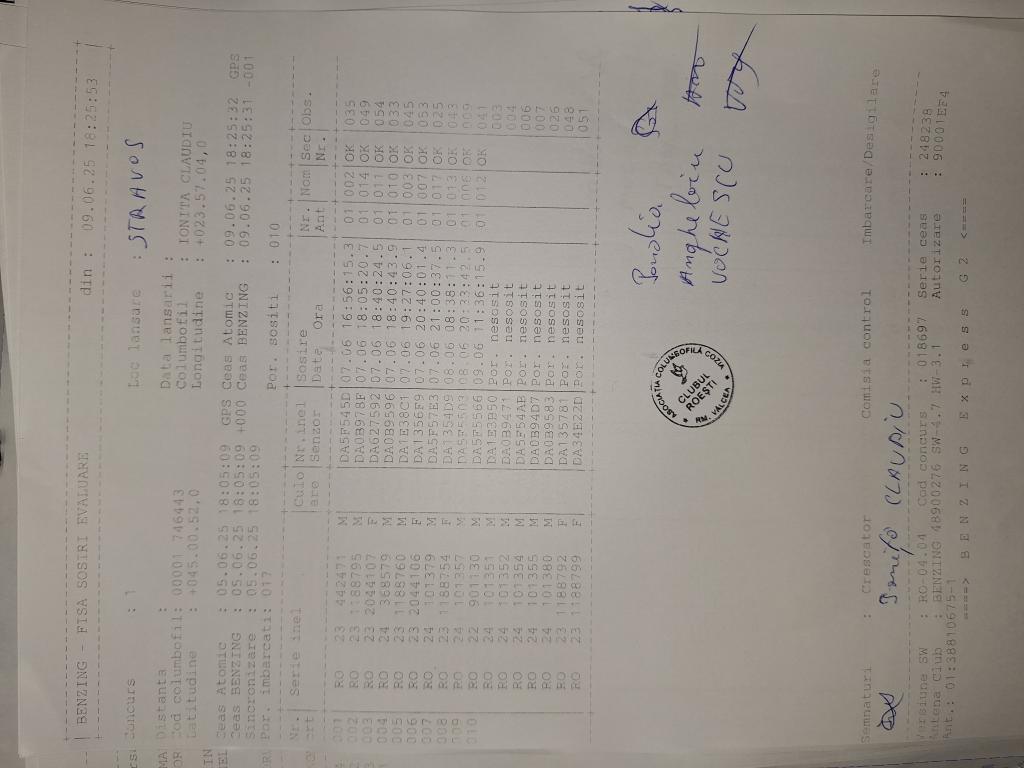 BENZING - FISA SOSIRI EVALUARE din : 09.06.25 18:25:53
Concurs : 1 Loc lansare : STRAVOS
Distanta :
Data lansarii :
Cod columbofil: 00001 746443 Columbofil : IONITA CLAUDIU
Latitudine : +045.00.52,0 Longitudine : +023.57.04,0
Ceas Atomic : 05.06.25 18:05:09 GPS Ceas Atomic : 09.06.25 18:25:32 GPS
Ceas BENZING : 05.06.25 18:05:09 +000 Ceas BENZING : 09.06.25 18:25:31 -001
Sincronizare : 05.06.25 18:05:09
Por. imbarcati: 017 Por. sositi : 010
Nr. Serie inel Culo Nr.inel Sosire Nr. Nom Sec Obs.
crt are Sensor Data Ora Ant Nr.
001 RO 23 442471 M DA5F545D 07.06 16:56:15.3 01 002 OK 035
002 RO 23 1188795 M DA0B978F 07.06 18:05:20.7 01 014 OK 049
003 RO 23 2044107 F DA627592 07.06 18:40:24.5 01 011 OK 054
004 RO 24 368579 M DA0B9596 07.06 18:40:43.9 01 010 OK 033
005 RO 23 1188760 M DA1E38C1 07.06 19:27:06.1 01 003 OK 045
006 RO 22 2044106 F DA135EF9 07.06 20:40:01.4 01 007 OK 053
007 RO 24 101379 M DA5F57E3 07.06 21:00:37.5 01 017 OK 025
008 RO 23 1188754 F DA1354D9 08.06 08:38:11.3 01 013 OK 043
009 RO 24 101357 M DA5F5503 08.06 20:33:42.5 01 006 OK 009
010 RO 22 901130 M DA5F5566 09.06 11:36:15.9 01 012 OK 041
RO 24 101351 M DA1E3950 Por. nesosit 003
RO 24 101352 M DA0B9471 Por. nesosit 004
RO 24 101354 M DA5F54AB Por. nesosit 006
RO 24 101355 M DA0B94D7 Por. nesosit 007
RO 24 101380 M DA0B9583 Por. nesosit 026
RO 23 1188792 F DA135781 Por. nesosit 048
RO 23 1188799 F DA34E22D Por. nesosit 051
ASOCIATIA COLUMBOFILĂ COZIA
CLUBUL
ROEȘTI
RM. VÂLCEA
VOCHESCU
Semnaturi : Crescator Comisia control Imbarcare/Desigilare
Ionița CLAUDIU
Versiune SW : RO.04.04 Cod concurs : 018697 Serie ceas : 248238
Antena Club : BENZING 48900276 SW-4.7 HW.3.1 Autorizare : 90001EF4
Ant.: 01:38810675-1
====> B E N Z I N G E x p r e s s G 2 <====